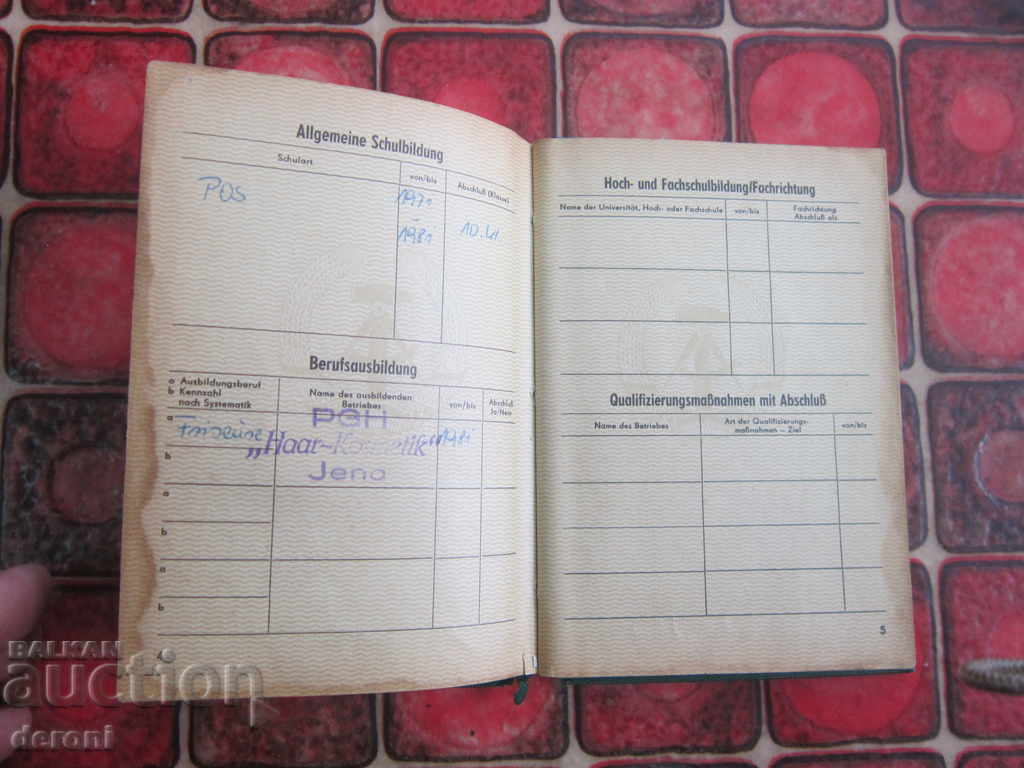 Allgemeine Schulbildung
Schulart
von/bis
Abschluß (Klasse)
POS
1971
–
1981
10. Kl
Berufsausbildung
a Ausbildungsberuf
b Kennzahl
nach Systematik
Name des ausbildenden
Betriebes
von/bis
Abschluß
Ja/Nein
a
Friseuse
PGH
„Haar-Kosmetik“
Jena
1981
b
a
b
a
b
4
Hoch- und Fachschulbildung/Fachrichtung
Name der Universität, Hoch- oder Fachschule
von/bis
Fachrichtung
Abschluß als
Qualifizierungsmaßnahmen mit Abschluß
Name des Betriebes
Art der Qualifizierungs-
maßnahmen – Ziel
von/bis
5
BALKAN
auction
deroni